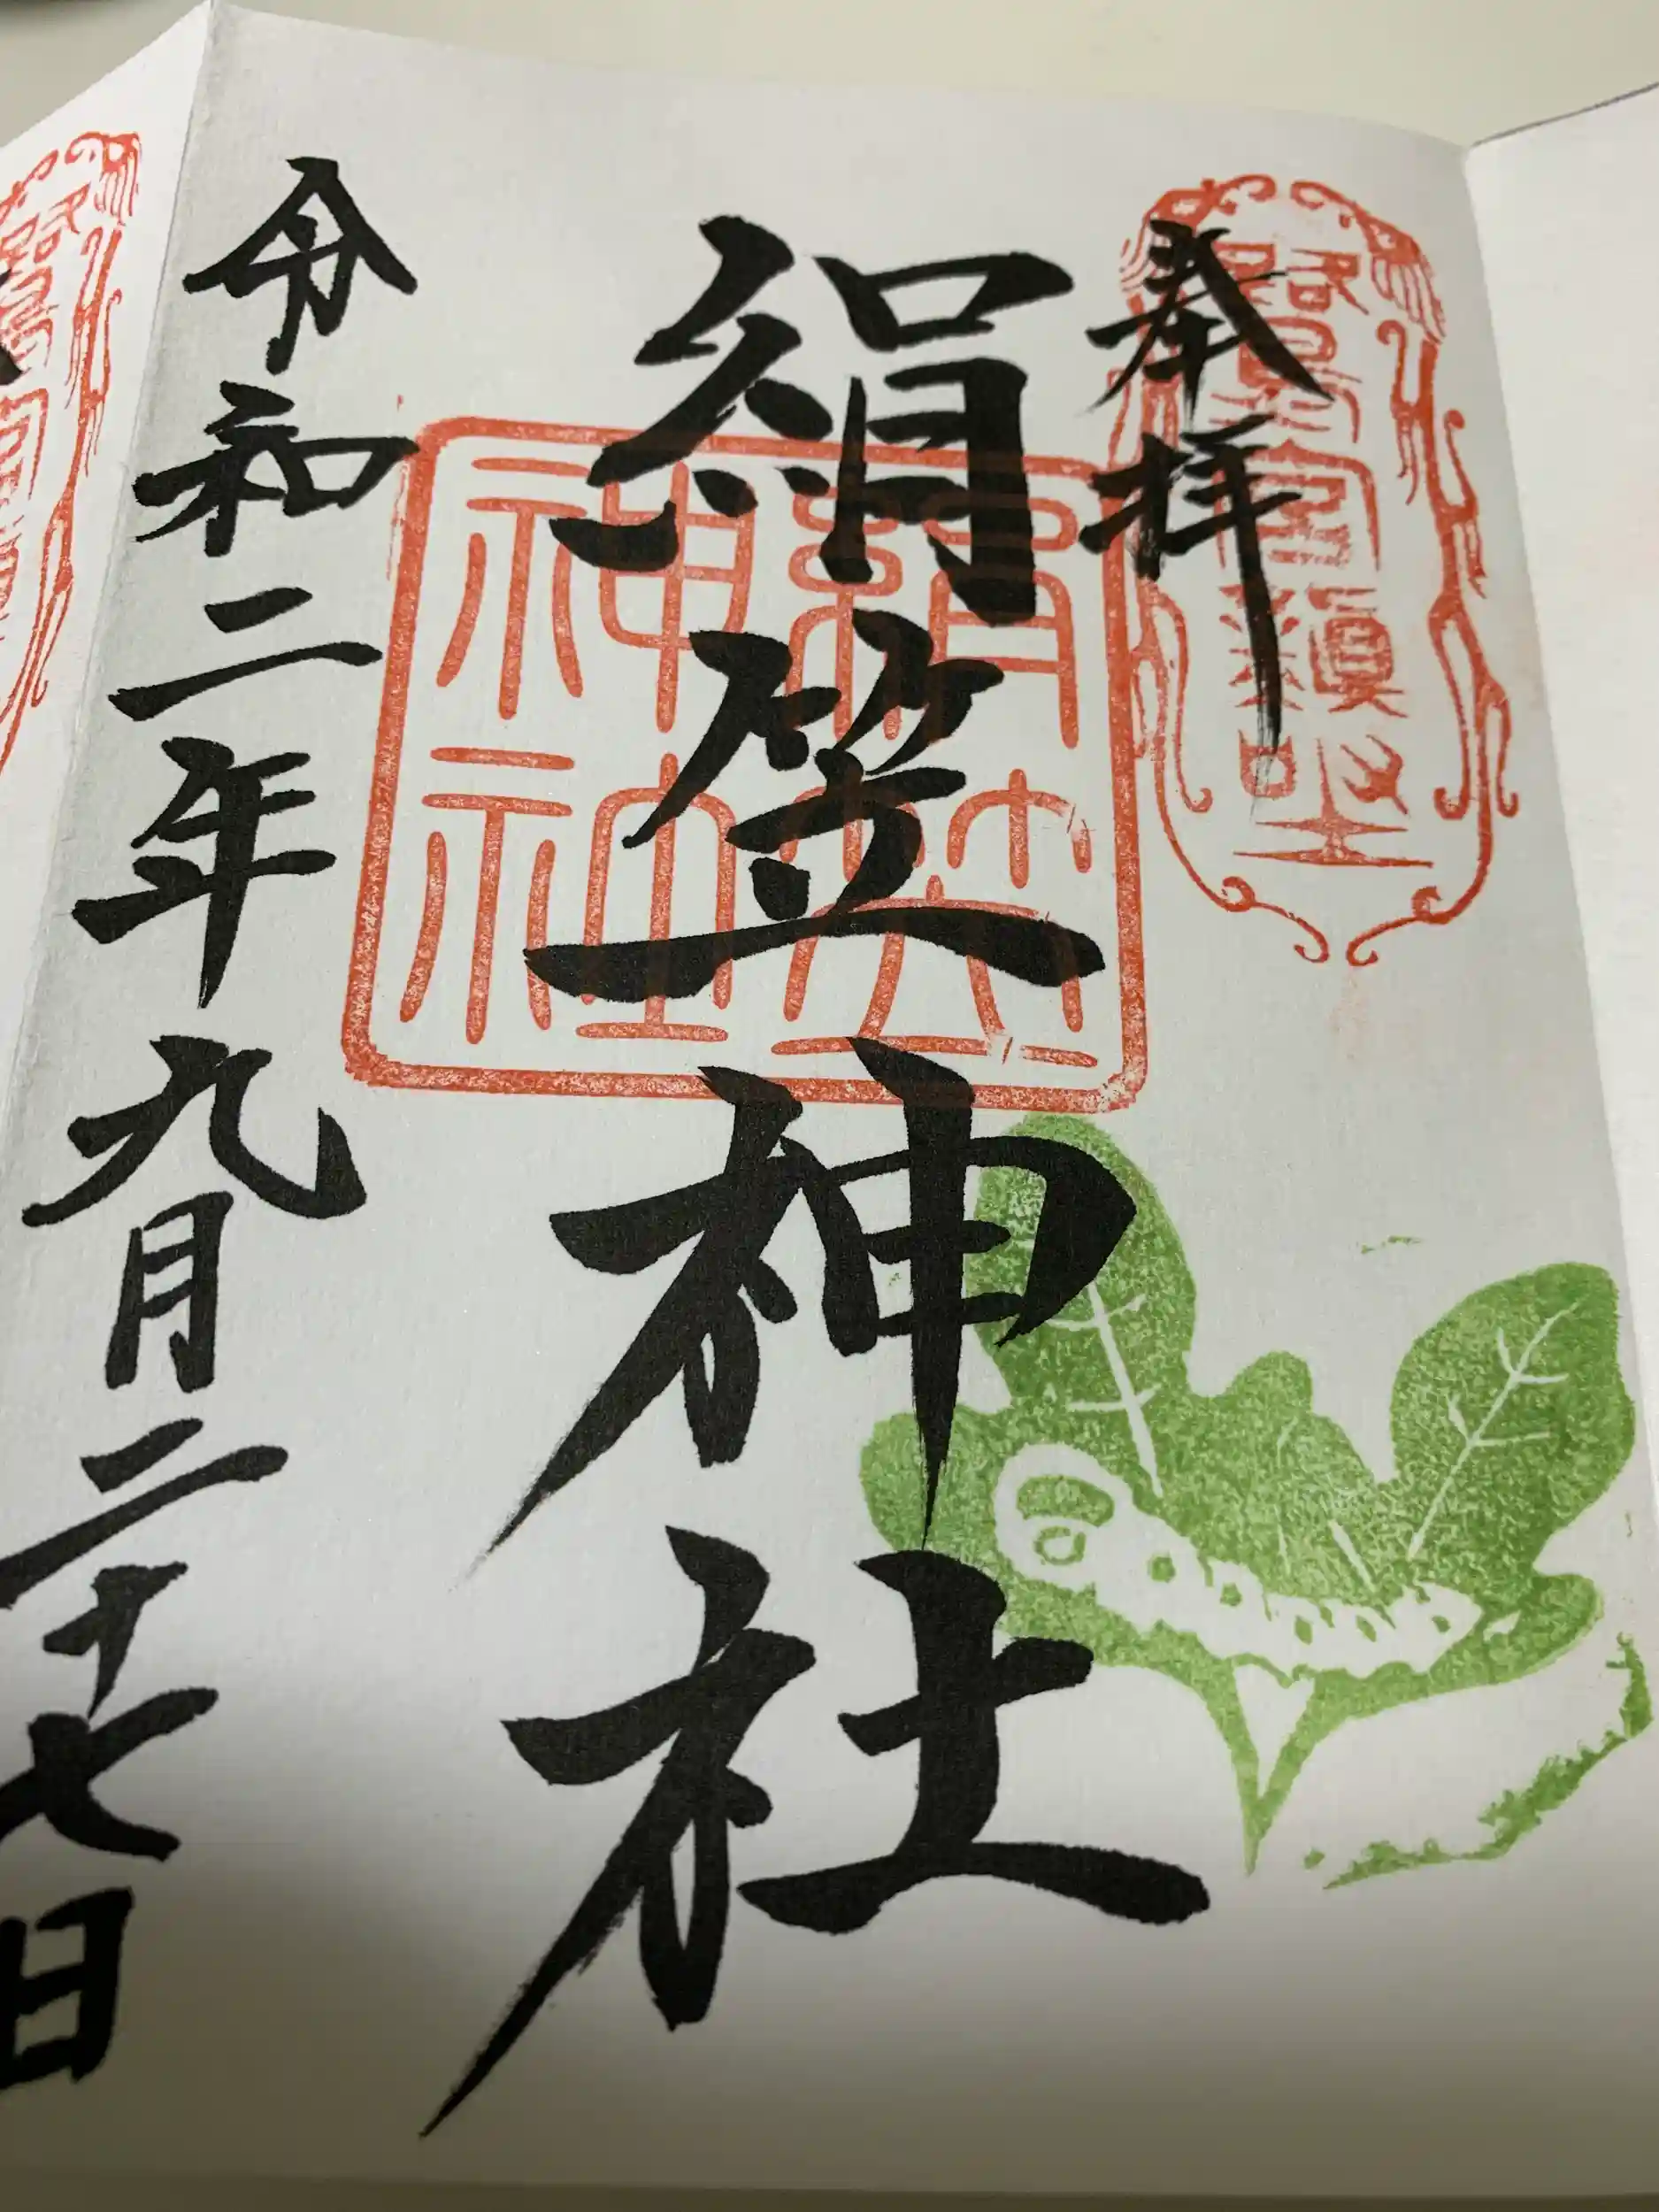 奉拝
絹笠神社
令和二年九月二十七日
絹笠
神社